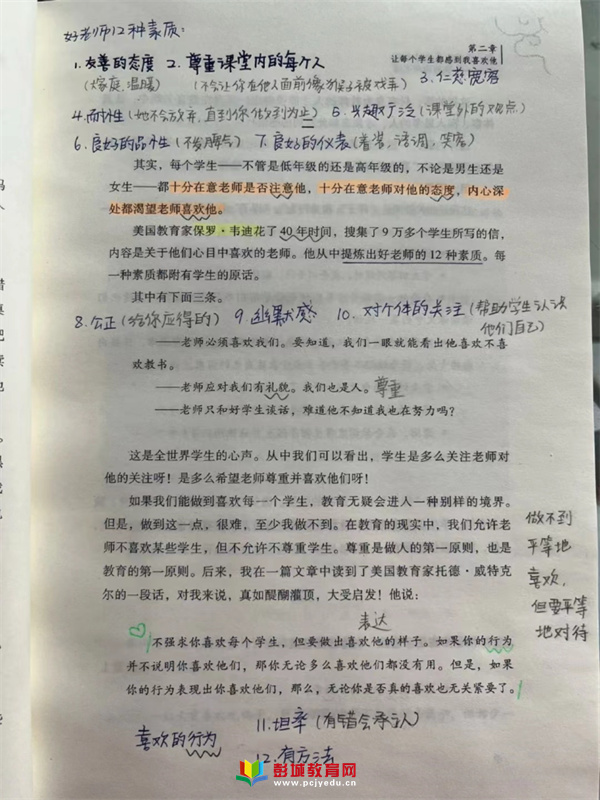 好老师12种素质：
第二章
让每个学生都感到我喜欢他
1.友善的态度 2.尊重课堂内的每个人
(大家庭,温暖) (不会让你在他人面前像猴子被戏弄)
3.仁慈宽容
4.耐性(她不会放弃,直到你做到为止) 5.兴趣广泛(课堂外的观点)
6.良好的品性(不发脾气) 7.良好的仪表(着装,语调,笑容)
其实，每个学生——不管是低年级的还是高年级的，不论是男生还是
女生——都十分在意老师是否注意他，十分在意老师对他的态度，内心深
处都渴望老师喜欢他。
美国教育家保罗·韦迪花了40年时间，搜集了9万多个学生所写的信，
内容是关于他们心目中喜欢的老师。他从中提炼出好老师的12种素质。每
一种素质都附有学生的原话。
其中有下面三条。
8.公正(给你应得的) 9.幽默感 10.对个体的关注(帮助学生认识
他们自己)
——老师必须喜欢我们。要知道，我们一眼就能看出他喜欢不喜
欢教书。
——老师应对我们有礼貌。我们也是人。尊重
——老师只和好学生谈话，难道他不知道我也在努力吗？
这是全世界学生的心声。从中我们可以看出，学生是多么关注老师对
他的关注呀！是多么希望老师尊重并喜欢他们呀！
如果我们能做到喜欢每一个学生，教育无疑会进入一种别样的境界。
但是，做到这一点，很难，至少我做不到。在教育的现实中，我们允许老
师不喜欢某些学生，但不允许不尊重学生。尊重是做人的第一原则，也是
教育的第一原则。后来，我在一篇文章中读到了美国教育家托德·威特克
尔的一段话，对我来说，真如醍醐灌顶，大受启发！他说：
做不到
平等地
喜欢，
但要平等
地对待
表达
不强求你喜欢每个学生，但要做出喜欢他的样子。如果你的行为
并不说明你喜欢他们，那你无论多么喜欢他们都没有用。但是，如果
你的行为表现出你喜欢他们，那么，无论你是否真的喜欢也无关紧要了。
喜欢的行为
11.坦率(有错会承认)
12.有方法
彭城教育网
www.pcjyedu.cn